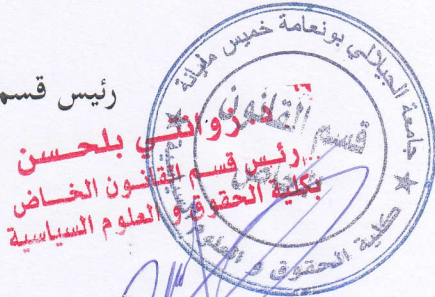 رئيس قسم
جامعة الجيلالي بونعامة خميس مليانة
قسم القانون
الخاص
كلية الحقوق و العلوم السياسية
زواتي بلحسن
رئيس قسم القانون الخاص
بكلية الحقوق و العلوم السياسية